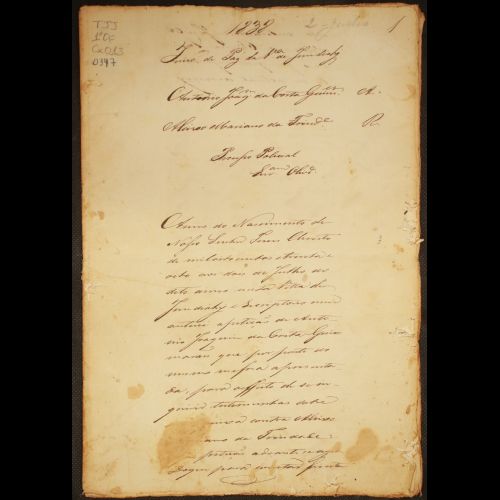 TJJ
1º Of
Cx 013
0347
1838
2 - Julho
1
Juizo de Paz da Vª de Jundiahy
Antonio Joaqm da Costa Guimes A.
Mariano da Trinde R.
Policial
Anno do Nascimento de
Nosso Senhor Jesus Christo
de mil oito centos e trinta e
oito aos dois de Julho do
dito anno nesta Villa de
Jundiahy e Escriptorio meu
autuei a petição de Anto
nio Joaquim da Costa Gui
maraes, que por parte do
mesmo me foi apresenta
da, para effeito de se in
quirir testemunhas sobre
contra
ano da Trindade
petição adiante
para constar